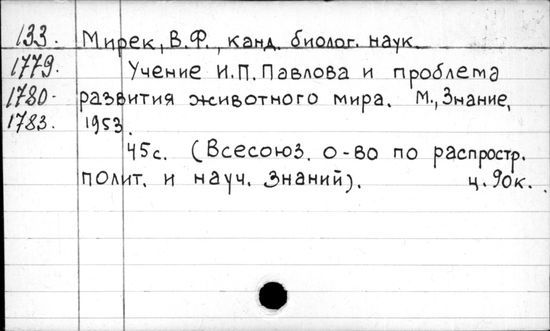 133. Мирек, В.Ф., канд. биолог. наук
1779. Учение И.П.Павлова и проблема
1780- развития животного мира. М., Знание,
1783. 1953.
45с. (Всесоюз. о-во по распростр.
полит. и науч. знаний). ц. 90к.